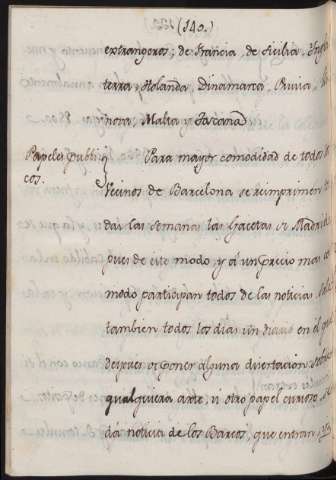 (140.)
extrangeros; de Francia, de Sicilia, Ingla
terra, Holanda, Dinamarca, Prusia,
nova, Malta y Toscana
Papeles publi
cos.
Para mayor comodidad de todos
Vecinos de Barcelona se reimprimen to
das las semanas las Gacetas de Madrid
pues de este modo, y á un precio mas co
modo participan todos de las noticias.
tambien todos los dias un diario en el q
despues de poner alguna disertacion sobre
qualquiera arte, u otro papel curioso se
dá noticia de los Barcos, que entran, y